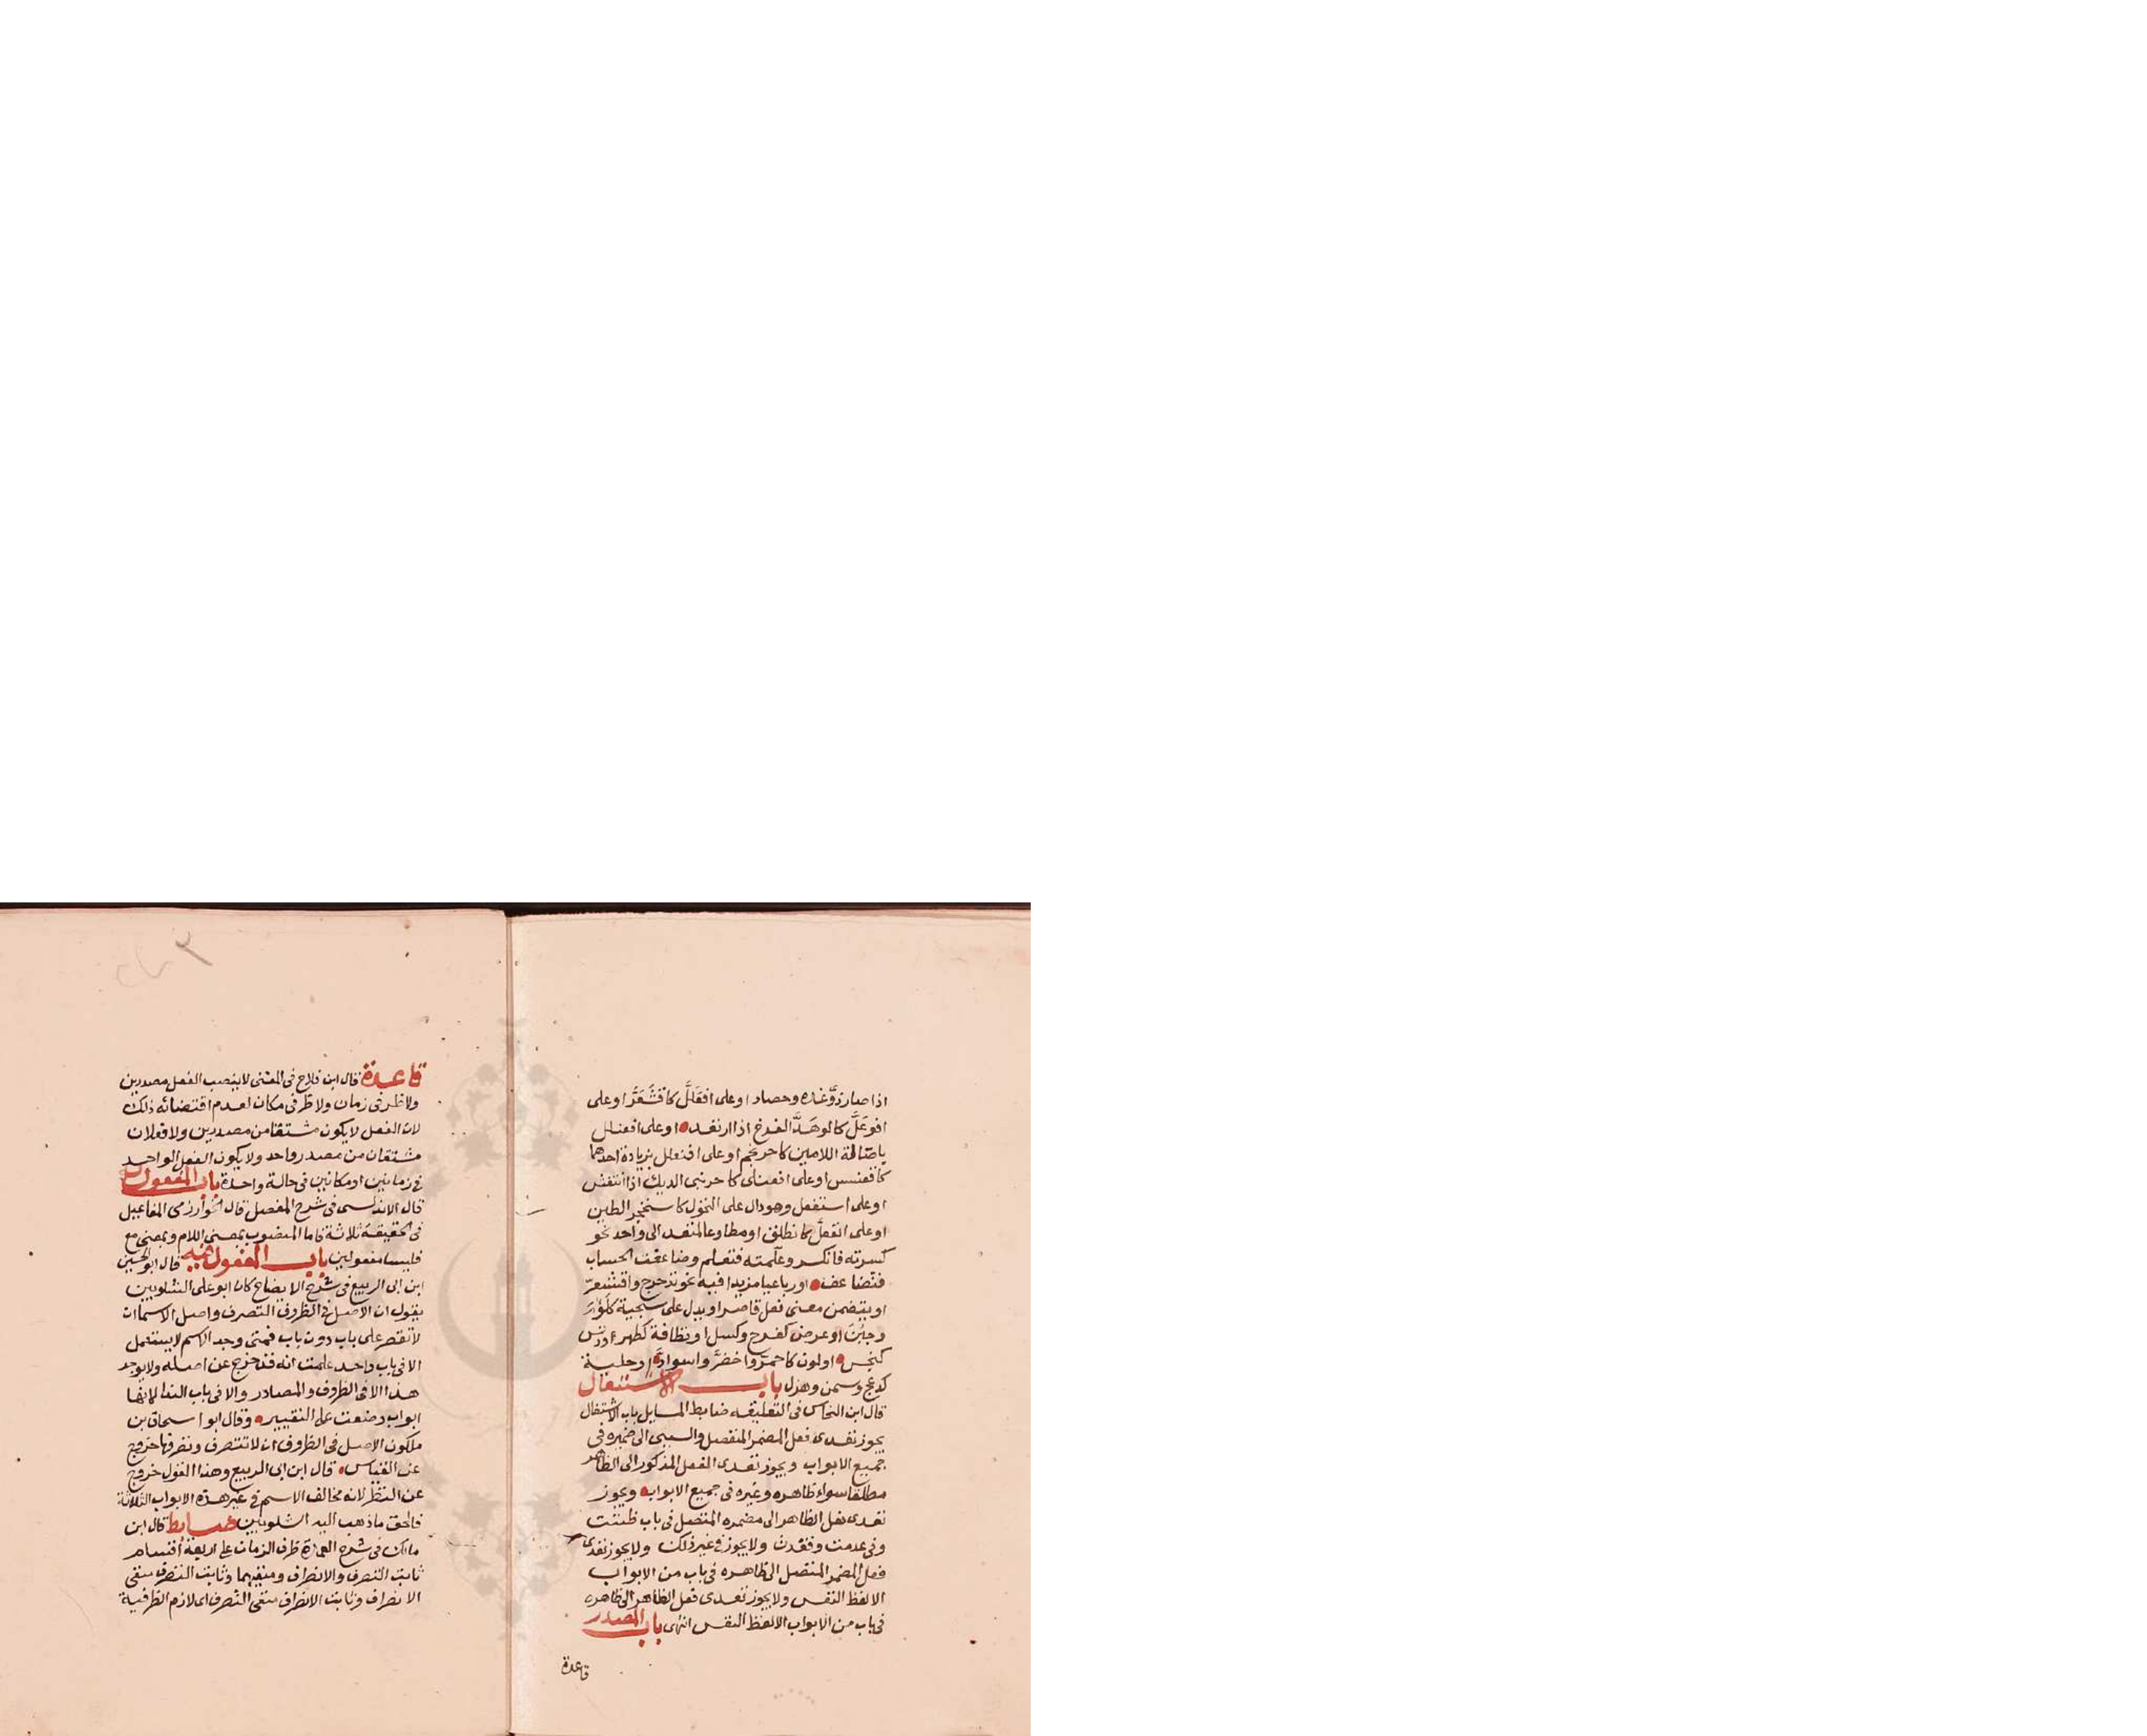 اذا صار ذو غده وحصاد او على افعَلَلَّ كاقشَعَرَّ او على
افوعَلَّ كالوهَدَّ الفرخ اذا ارتعد او على افعنلل
باصالة اللامين كاحرنجم او على افعنلل بزيادة احدهما
كاقعنسس او على افعنلى كاحرنبى الديك اذا انتفش
او على استفعل وهو دال على التحول كاستحجر الطين
او على انفعل كانطلق او مطاوعا لمتعد الى واحد نحو
كسرته فانكسر وعلمته فتعلم وضاعفت الحساب
فتضاعف او رباعيا مزيدا فيه نحو تدحرج واقشعرّ
او يتضمن معنى فعل قاصر او يدل على سجية كلَؤُمَ
وجبُنَ او عرض كفرح وكسل او نظافة كطهر او دنس
كنجس او لون كاحمرّ واخضرّ واسوادّ او حلية
كدعج وسمن وهزل باب الاشتغال
قال ابن النحاس فى التعليقه ضابط المسايل باب الاشتغال
يجوز تعدى فعل المضمر المنفصل والسببى الى ضميره فى
جميع الابواب ويجوز تعدى الفعل المذكور الى الظاهر
مطلقا سواء ظاهره وغيره فى جميع الابواب ويجوز
تعدى فعل الظاهر الى مضمره المتصل فى باب ظننت
وفى عدمت وفقدت ولا يجوز فى غير ذلك ولا يجوز تعدى
فعل المضمر المتصل الى ظاهره فى باب من الابواب
الا لفظ النفس ولا يجوز تعدى فعل الظاهر الى ظاهره
فى باب من الابواب الا لفظ النفس انتهى باب المصدر
قاعدة
قاعدة قال ابن فلاح فى المغنى لا ينصب الفعل مصدرين
ولا ظرفى زمان ولا ظرفى مكان لعدم اقتضائه ذلك
لان الفعل لا يكون مشتقا من مصدرين ولا فعلان
مشتقان من مصدر واحد ولا يكون الفعل الواحد
فى زمانين او مكانين فى حالة واحدة باب المفعول له
قال الاندلسى فى شرح المفصل قال الخوارزمى المفاعيل
فى الحقيقة ثلاثة فاما المنصوب بمعنى اللام وبمعنى مع
فليسا مفعولين باب المفعول فيه قال ابو الحسين
ابن ابى الربيع فى شرح الايضاح كان ابو على الشلوبين
يقول ان الاصل فى الظروف التصرف واصل الاسما ان
لا تقصر على باب دون باب فمتى وجد الاسم لا يستعمل
الا فى باب واحد علمت انه قد خرج عن اصله ولا يوجد
هذا الا فى الظروف والمصادر والا فى باب الندا لانها
ابواب وضعت على التغيير وقال ابو اسحاق بن
ملكون الاصل فى الظروف ان لا تتصرف وتصرفها خروج
عن القياس قال ابن ابى الربيع وهذا القول خروج
عن النظر لانه مخالف الاسم فى غير هذه الابواب الثلاثة
فالحق ما ذهب اليه الشلوبين ضابط قال ابن
مالك فى شرح العمدة ظرف الزمان على اربعة أقسام
ثابت التصرف والانصراف ومنفيهما وثابت التصرف منفى
الانصراف وثابت الانصراف منفى التصرف اى لازم الظرفية